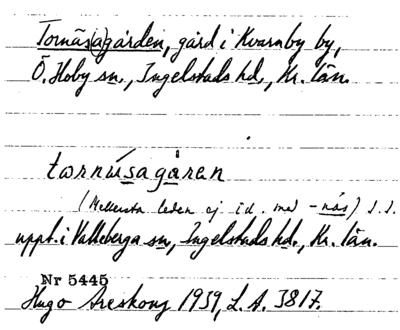 Tornäs(a)gården, gård i Kvarnby by,
Ö. Hoby sn., Ingelstads hd., Kr. län.
tornúsagåren
(Mellersta leden ej id. med -näs) S.I.
uppt. i Valleberga sn., Ingelstads hd., Kr. län.
Nr 5445
Hugo Areskoug 1939, L.A. 3817.